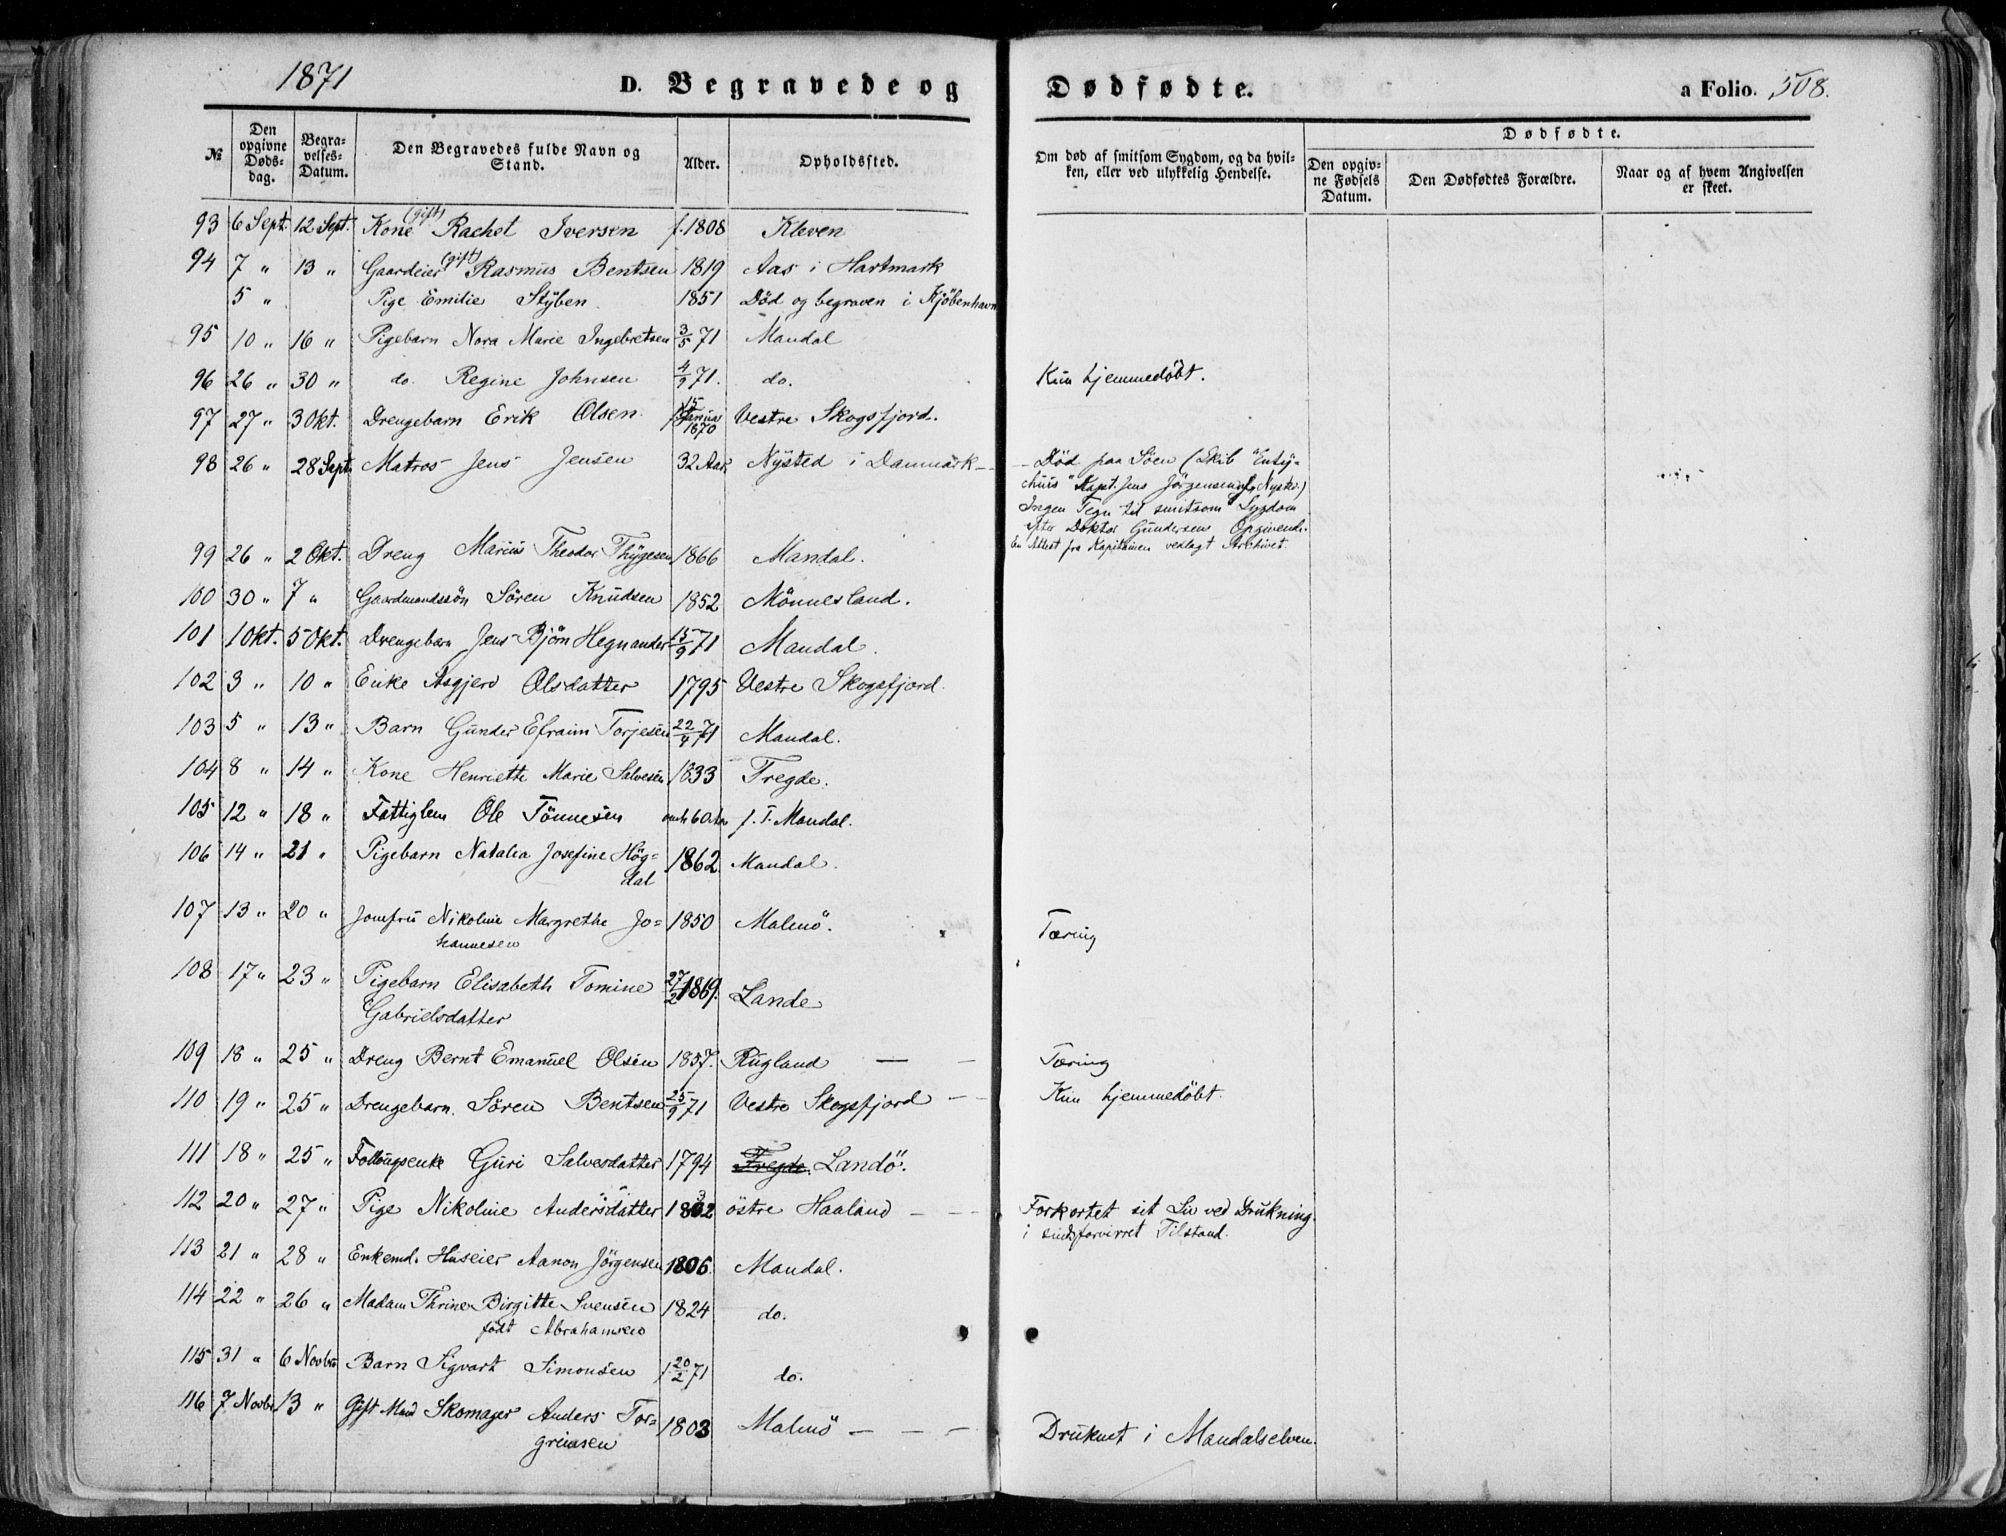 1871
D. Begravede og Dødfødte.
a Folio. 508.
№
Den opgivne Døds-dag.
Begra-velses-Datum.
Den Begravedes fulde Navn og Stand.
Alder.
Opholdssted.
Om død af smitsom Sygdom, og da hvil-ken, eller ved ulykkelig Hendelse.
Dødfødte.
Den opgiv-ne Fødsels Datum.
Den Dødfødtes Forældre.
Naar og af hvem Angivelsen er skeet.
93 6 Sept. 12 Sept. Kone (gift) Rachel Iversen f. 1808 Kleven
94 7 " 13 " Gaardeier (gift) Rasmus Bentsen 1819 Aas i Hartmark
5 " Pige Emilie Styben 1851 Död og begraven i Kjöbenhavn
95 10 " 16 " Pigebarn Nora Marie Ingebretsen 3/5 71 Mandal
96 26 " 30 " do. Regine Johnsen 4/9 71. do. Kun hjemmedöbt.
97 27 " 3 Okt. Drengebarn Erik Olsen 15 Januar 1870 Vestre Skogsfjord.
98 26 " 28 Sept. Matros Jens Jensen 32 Aar Nysted i Danmark - - Död paa Söen (Skib "Euty=
chuis" Kapt. Jens Jörgensen af Nysted.)
Ingen Tegn til smitsom Sygdom
efter Doktor Gundersens Opgivende.
En Attest fra Kapitainen vedlagt Archivet.
99 26 " 2 Okt. Dreng Marius Theodor Thygesen 1866 Mandal.
100 30 " 7 " Gaardmandssön Sören Knudsen 1852 Mönnesland.
101 1 Okt. 5 Okt. Drengebarn Jens Björn Hegnander 15/9 71 Mandal.
102 3 " 10 " Enke Asgjerd Olsdatter 1795 Vestre Skogsfjord.
103 5 " 13 " Barn Gunder Efraim Torjesen 22/4 71 Mandal.
104 8 " 14 " Kone Henriette Marie Salvesen 1833 Tregde.
105 12 " 18 " Fattiglem Ole Tönnesen omtr 60 Aar f. T. Mandal.
106 14 " 21 " Pigebarn Natalia Josefine Hög=
dal 1862 Mandal.
107 13 " 20 " Jomfru Nikoline Margrethe Jo=
hannesen 1850 Malmö. Tæring
108 17 " 23 " Pigebarn Elisabeth Tomine
Gabrielsdatter 27/2 1869. Lande
109 18 " 25 " Dreng Bernt Emanuel Olsen 1857. Rugland — - Tæring
110 19 " 25 " Drengebarn. Sören Bentsen 25/9 71 Vestre Skogsfjord - - Kun hjemmedöbt.
111 18 " 25 " Föllougsenke Guri Salvesdatter 1794 Tregde. Landö.
112 20 " 27 " Pige Nikoline Andersdatter 1832 östre Haaland - - - Forkortet sit Liv ved Drukning
i sindsforvirret Tilstand.
113 21 " 28 " Enkemd. Huseier Aanon Jörgensen 1806. Mandal.
114 22 " 26 " Madam Thrine Birgitte Svensen
födt Abrahamsen 1824 do.
115 31 " 6 Novbr Barn Sigvart Simonsen f. 20/2 71 do.
116 7 Novbr 13 " Gift Mand Skomager Anders Tor=
grimsen 1803 Malmö - - - Druknet i Mandalselven.